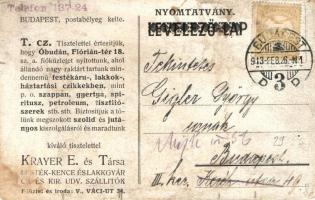 Telefon 137-24
BUDAPEST, postabélyeg kelte.
T. cz. Tisztelettel értesítjük,
hogy Óbudán, Flórián-tér 18.
sz. a. fióküzletet nyitottunk, ahol
állandó nagy raktárt tartunk minden-
nemű festékáru-, lakkok-,
háztartási czikkekben, mint
p. o. szappan, gyertya, spi-
ritusz, petroleum, tisztító-
szerek stb. stb. Biztosítjuk a tó-
lünk megszokott szolid és ju-
tányos kiszolgálásról és maradtunk
kiváló tisztelettel
KRAYER E. és Társa
FESTÉK-KENCE ÉS LAKKGYÁR
CS. ÉS KIR. UDV. SZÁLLÍTÓK
Főüzlet és iroda: V., VÁCI-UT 34.
NYOMTATVÁNY.
LEVELEZŐ-LAP
BUDAPEST
913 FEB 26
P 3 P
Tekintetes
Gigler György
urnak
Budapest
III. ker.